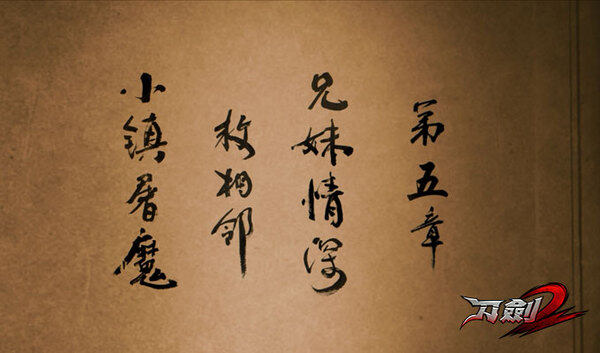 第五章
兄妹情深
救相邻
小镇屠魔
刀劍2